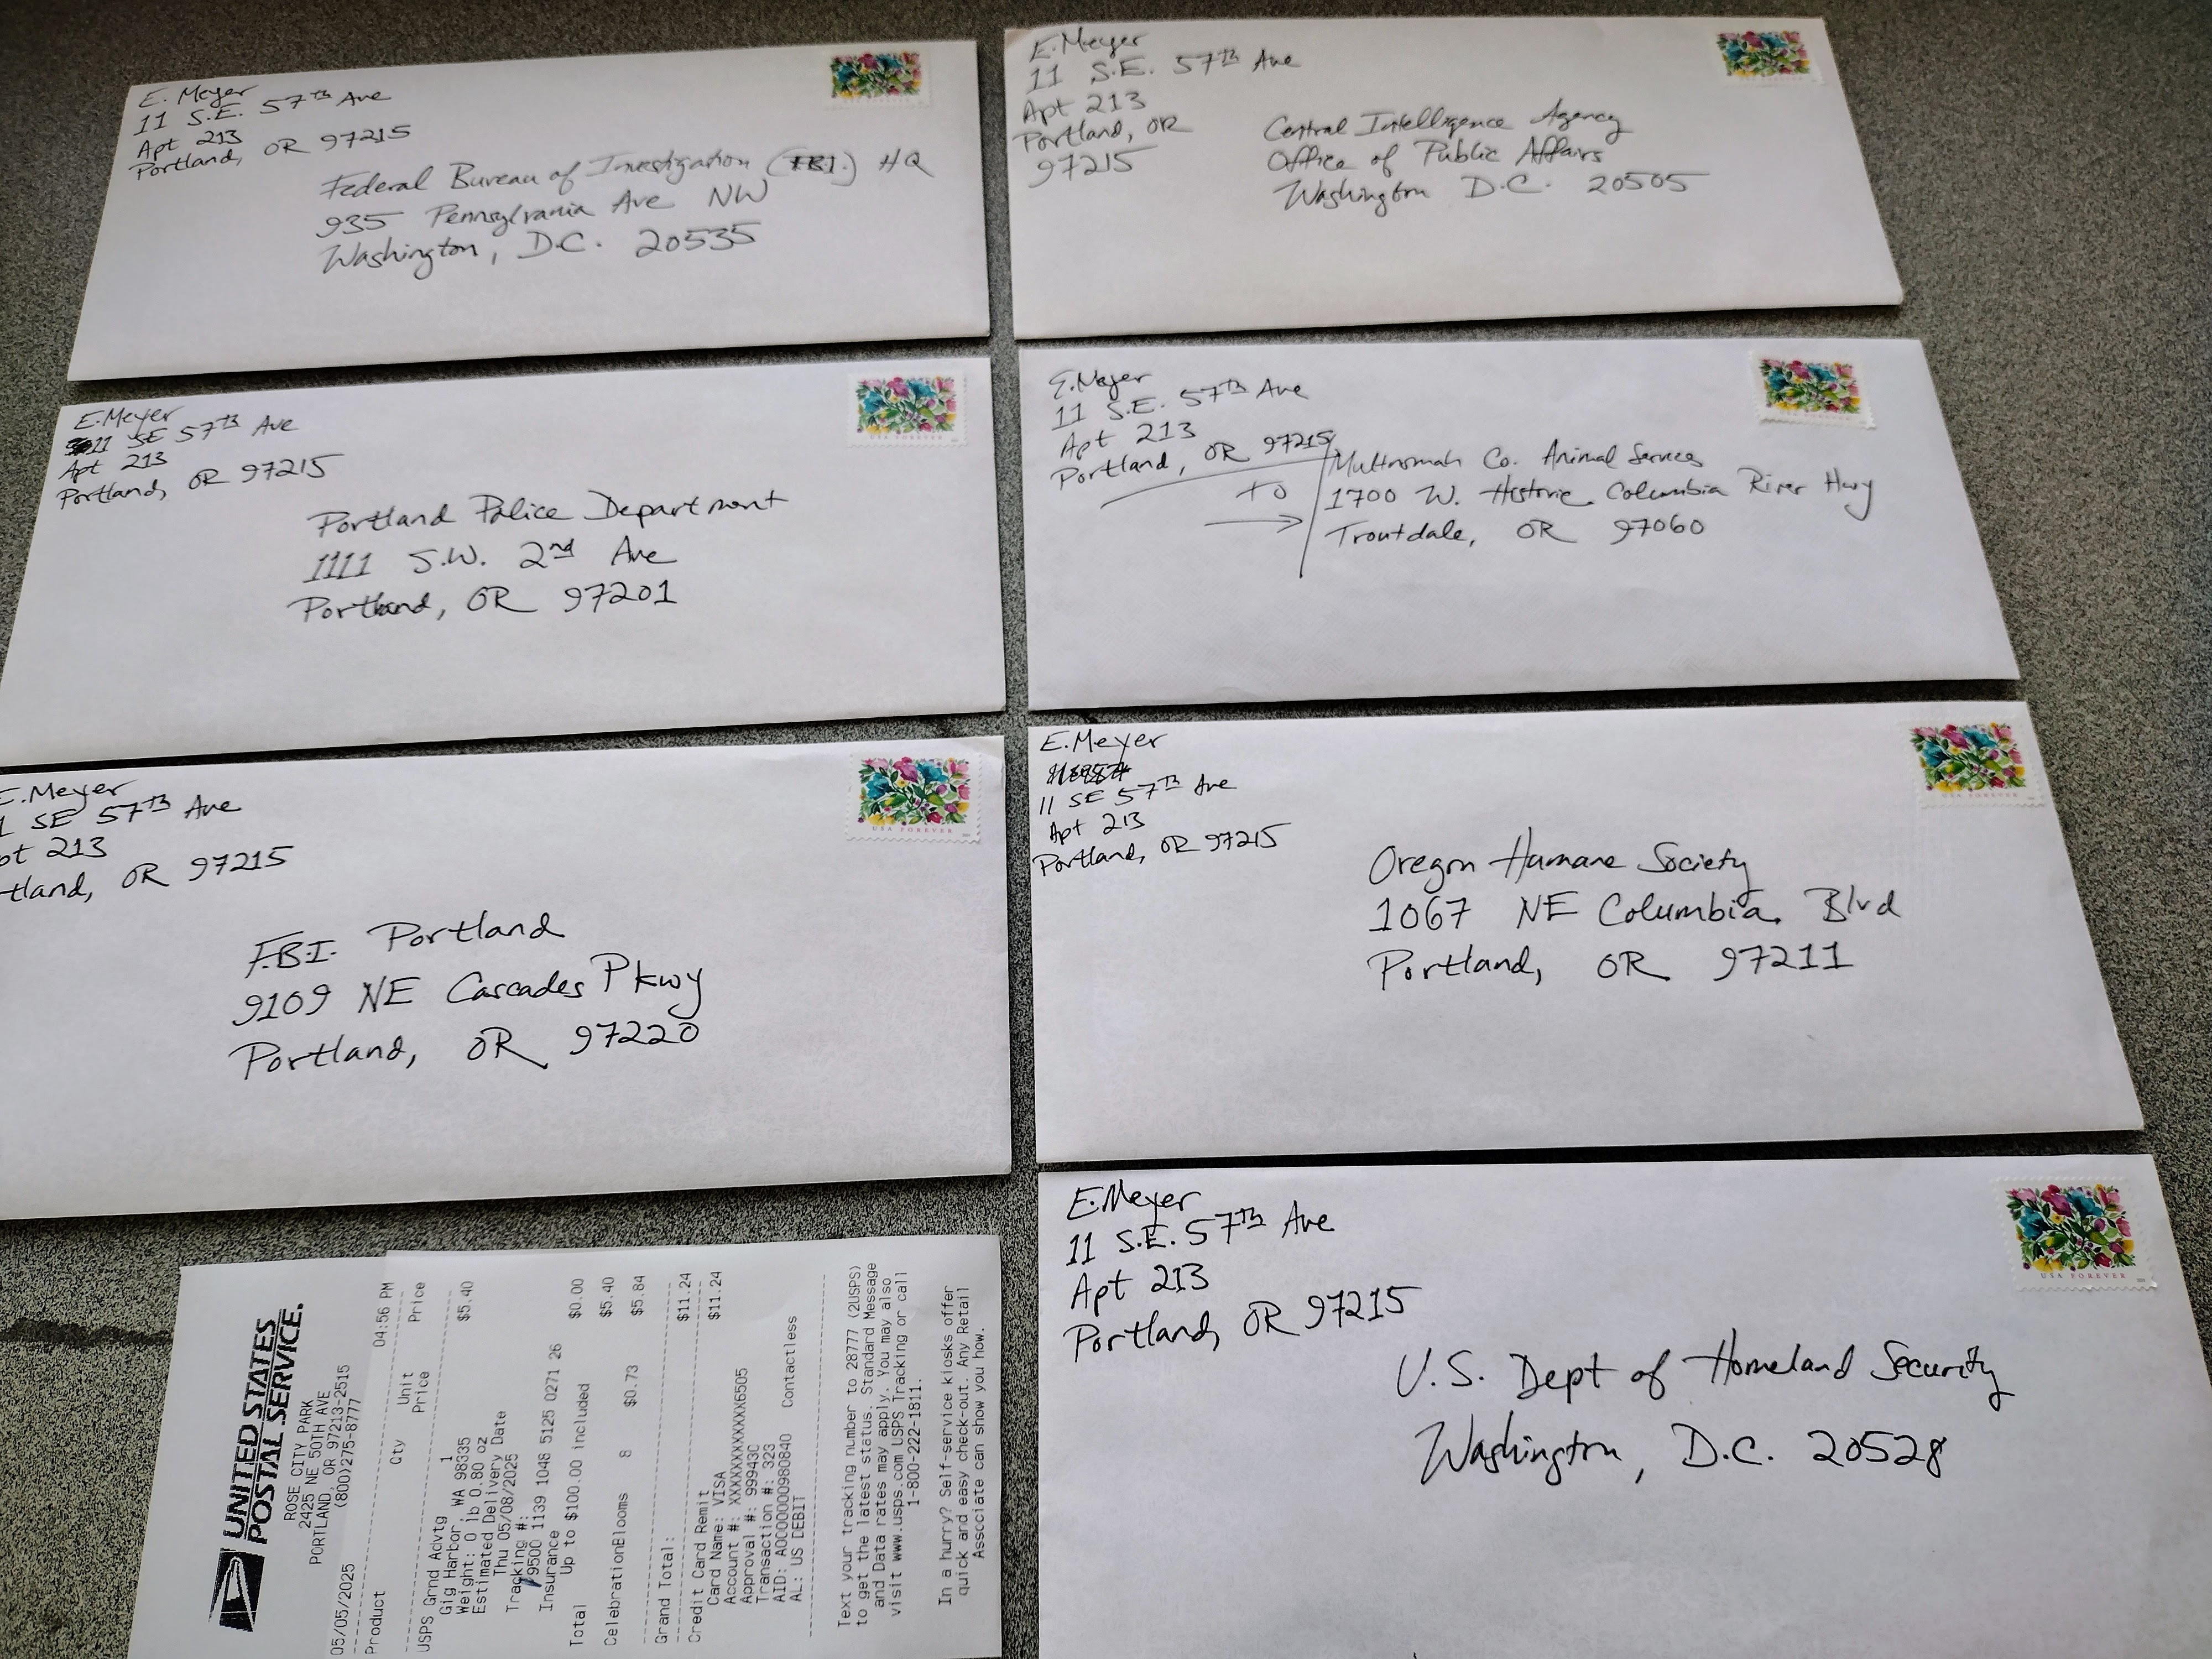 E. Meyer
11 S.E. 57th Ave
Apt 213
Portland, OR 97215
Federal Bureau of Investigation (F.B.I.) HQ
935 Pennsylvania Ave NW
Washington, D.C. 20535
E. Meyer
11 S.E. 57th Ave
Apt 213
Portland, OR
97215
Central Intelligence Agency
Office of Public Affairs
Washington D.C. 20505
E. Meyer
11 SE 57th Ave
Apt 213
Portland, OR 97215
USA FOREVER
Portland Police Department
1111 S.W. 2nd Ave
Portland, OR 97201
E. Meyer
11 S.E. 57th Ave
Apt 213
Portland, OR 97215
to
Multnomah Co. Animal Services
1700 W. Historic Columbia River Hwy
Troutdale, OR 97060
E. Meyer
1 SE 57th Ave
pt 213
tland, OR 97215
USA FOREVER
F.B.I. Portland
9109 NE Cascades Pkwy
Portland, OR 97220
E. Meyer
11 SE 57th Ave
Apt 213
Portland, OR 97215
Oregon Humane Society
1067 NE Columbia Blvd
Portland, OR 97211
UNITED STATES
POSTAL SERVICE.
ROSE CITY PARK
2425 NE 50TH AVE
PORTLAND, OR 97213-2515
(800)275-8777
05/05/2025 04:56 PM
Product Qty Unit Price
Price
USPS Grnd Advtg 1 $5.40
Gig Harbor, WA 98335
Weight: 0 lb 0.80 oz
Estimated Delivery Date
Thu 05/08/2025
Tracking #:
9500 1139 1048 5125 0271 26
Insurance $0.00
Up to $100.00 included
Total $5.40
CelebrationBlooms 8 $0.73 $5.84
Grand Total: $11.24
Credit Card Remit $11.24
Card Name: VISA
Account #: XXXXXXXXXXXX6505
Approval #: 99943C
Transaction #: 323
AID: A0000000980840 Contactless
AL: US DEBIT
Text your tracking number to 28777 (2USPS)
to get the latest status. Standard Message
and Data rates may apply. You may also
visit www.usps.com USPS Tracking or call
1-800-222-1811.
In a hurry? Self-service kiosks offer
quick and easy check-out. Any Retail
Associate can show you how.
E. Meyer
11 S.E. 57th Ave
Apt 213
Portland, OR 97215
USA FOREVER
U.S. Dept of Homeland Security
Washington, D.C. 20528